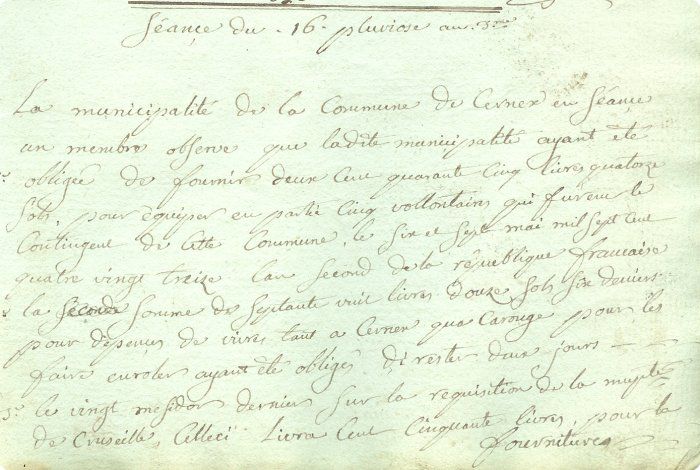 Séance du 16 pluviose an 3me
La municipalité de la Commune de Cerner en Séance
un membre observe que ladite municipalité ayant été
obligée de fournir deux Cent quarante Cinq livres quatorze
Sols, pour équiper en partie Cinq vollontairs qui furent le
Contingent de Cette Commune, le six et Sept mai mil Sept Cent
quatre vingt treize lan second de la république francaise
la Seconde Somme de Septante vuit livres douze Sols Six deniers
pour dépences de vivre, tant a Cerner qua Carouge pour les
faire enroler ayant été obligés di rester deux jours — —
3° le vingt mesidor dernier sur la requisition de la mupté
de Cruseille, Celleci Livra Cent Cinquante livres, pour la
fournitures